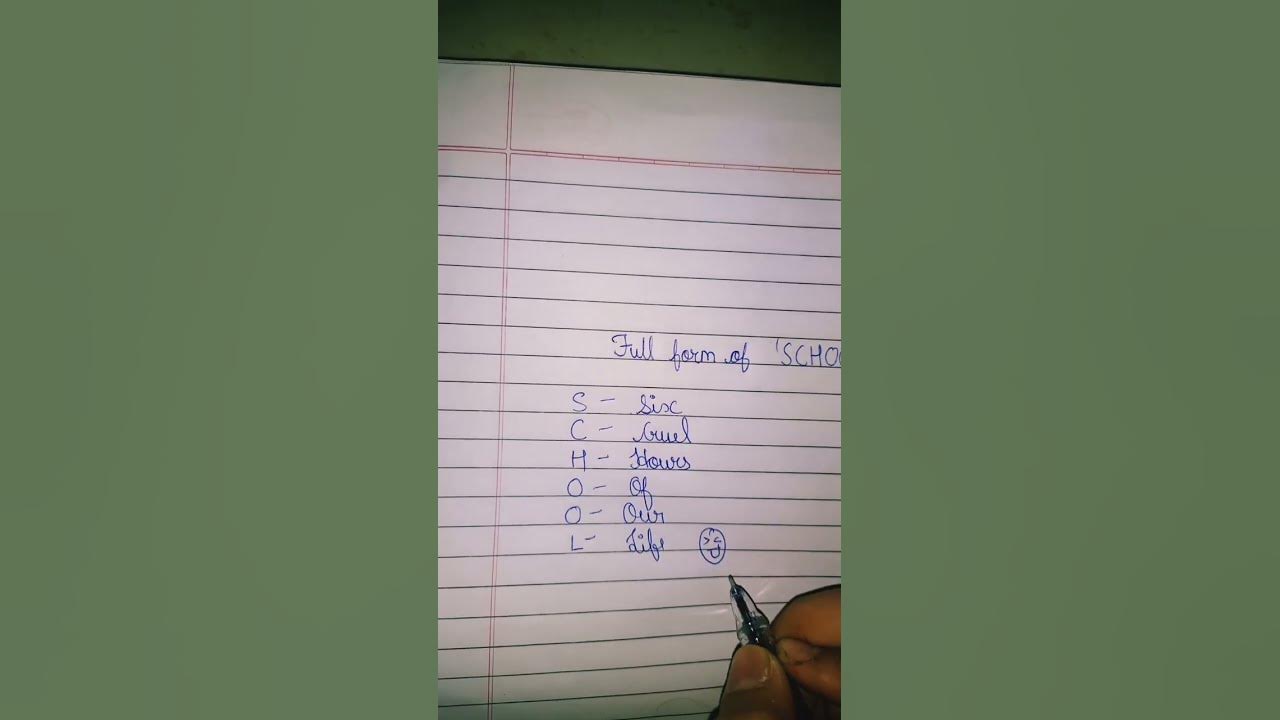 Full form of 'SCHOO
S - Six
C - Cruel
H - Hours
O - Of
O - Our
L - Life